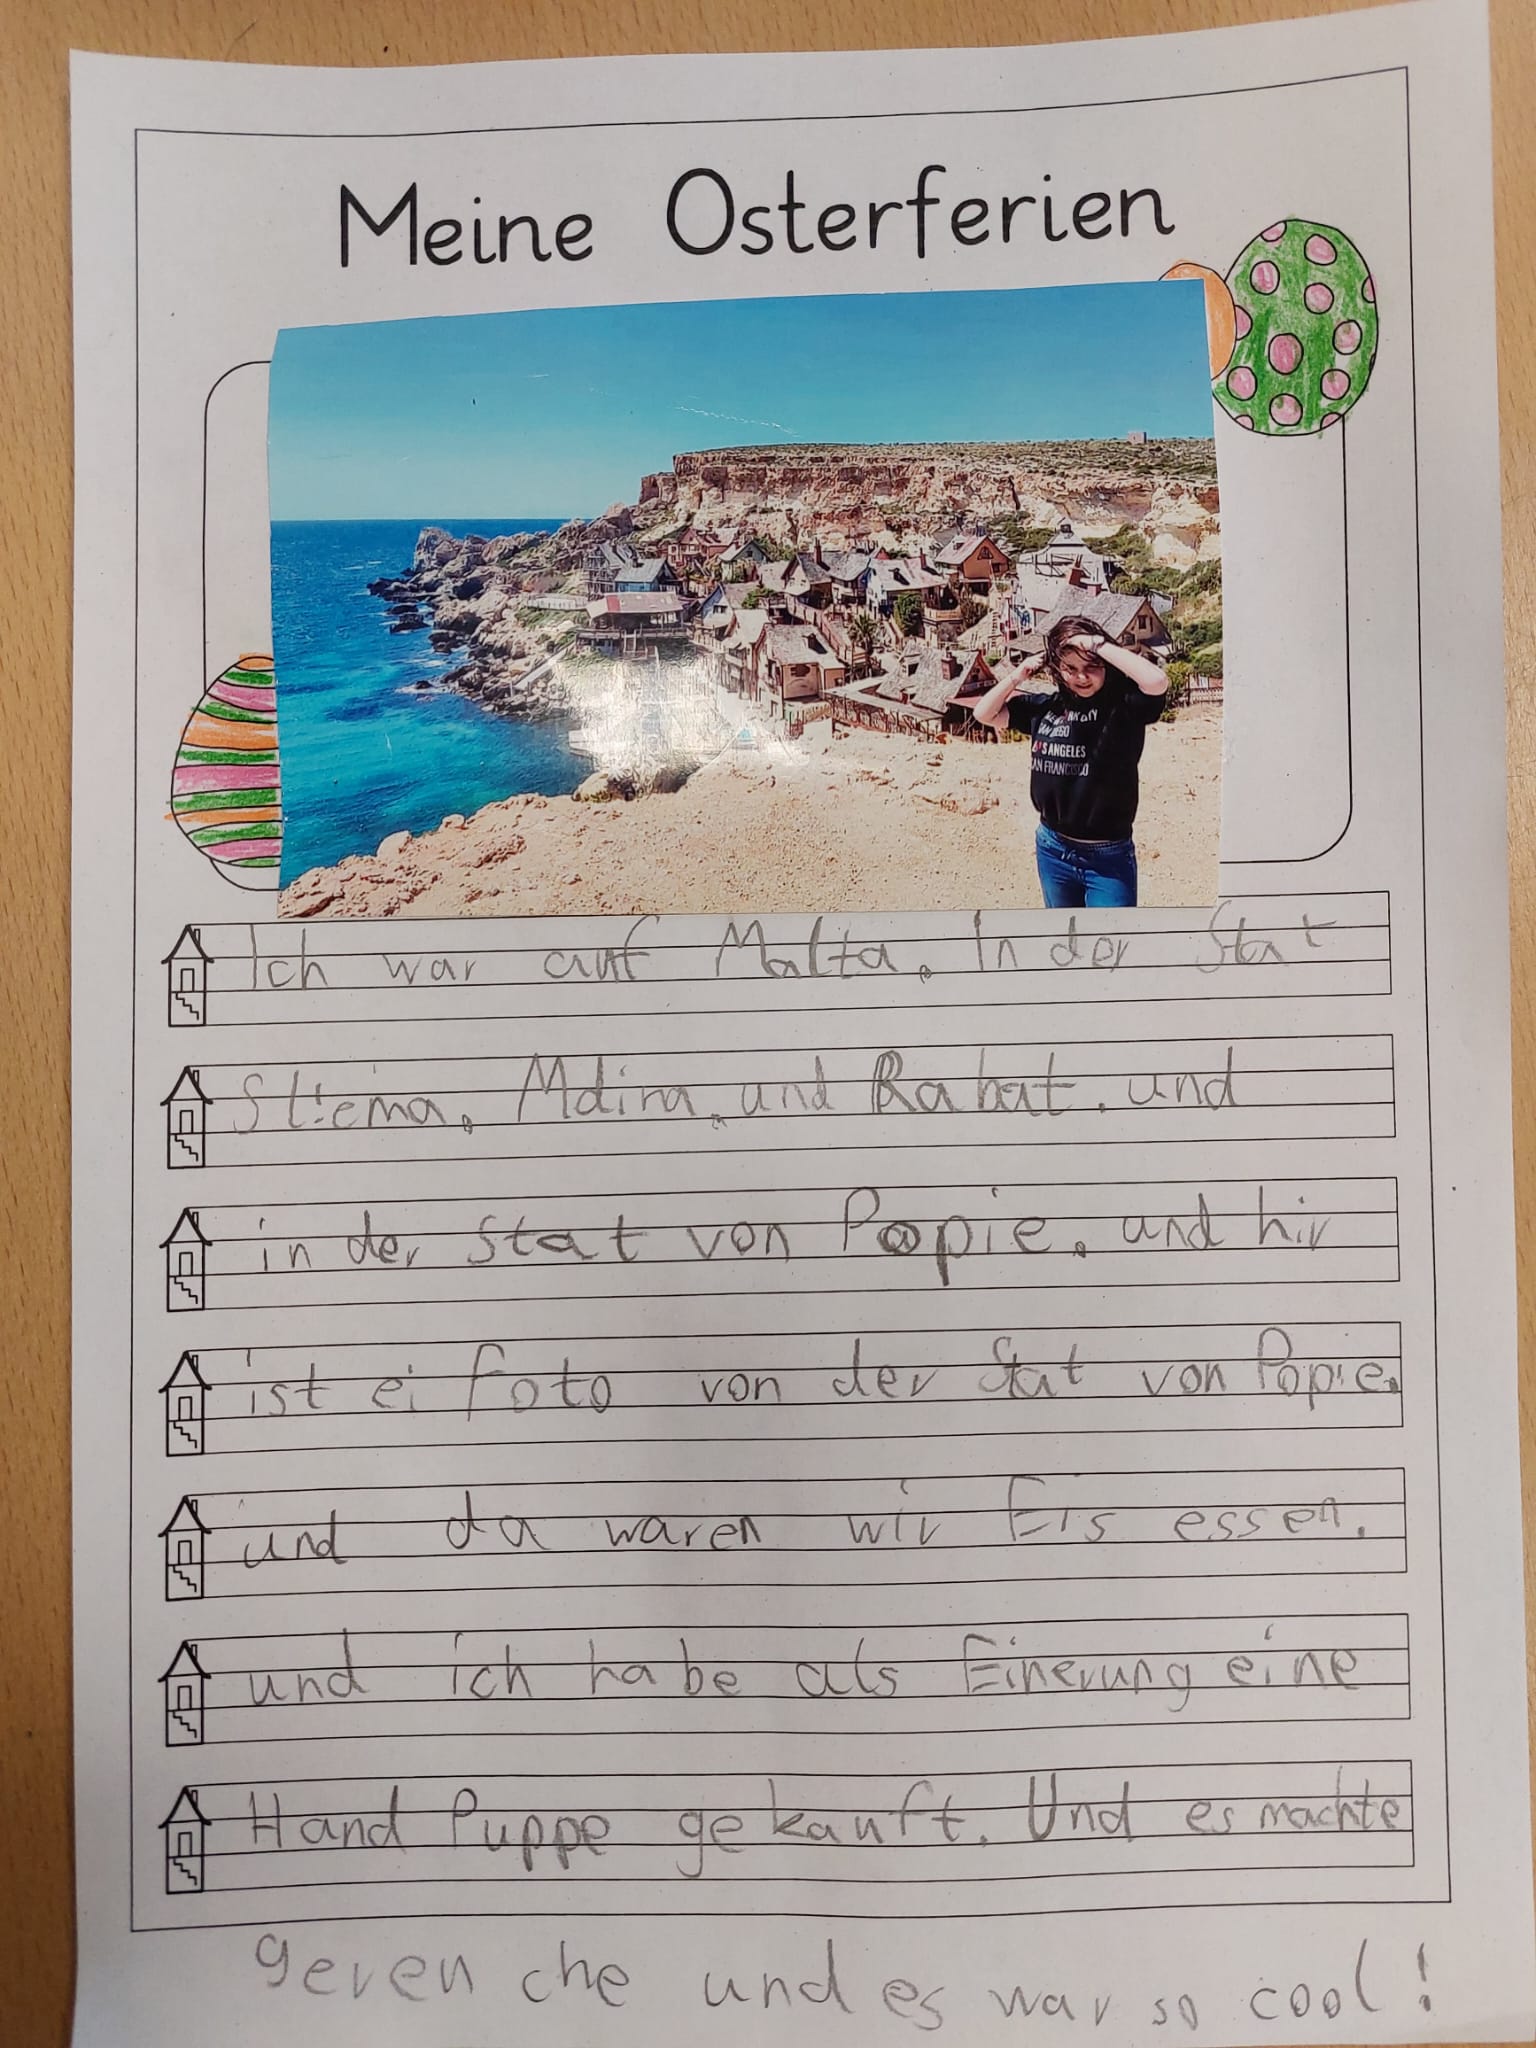 Meine Osterferien
SAN DIEGO
LOS ANGELES
SAN FRANCISCO
Ich war auf Malta. In der Stat
Sliema, Mdina, und Rabat. und
in der Stat von Popie. und hir
ist ei Foto von der Stat von Popie.
und da waren wir Eis essen.
und ich habe als Einerung eine
Hand Puppe gekauft. Und es machte
geren che und es war so cool!